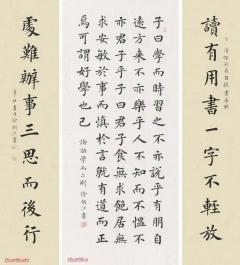 讀有用書一字不輕放
子曰學而時習之不亦說乎有朋自
遠方來不亦樂乎人不知而不慍不
亦君子乎子曰君子食無求飽居無
求安敏於事而慎於言就有道而正
焉可謂好學也已
論語學而二則
處難辦事三思而後行